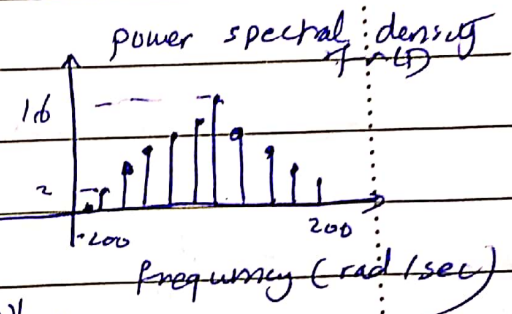 power spectral density
16
2
-200
200
frequency (rad/sec)